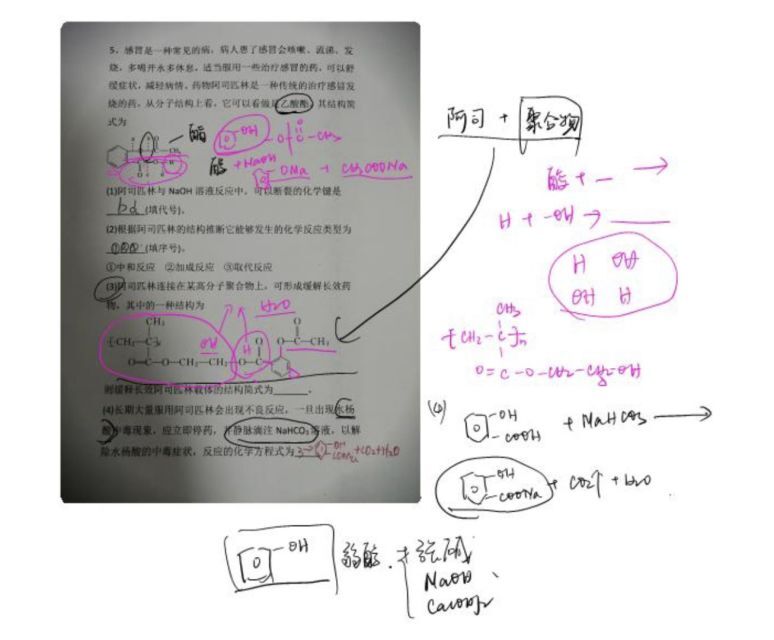 5、感冒是一种常见的病，病人患了感冒会咳嗽、流涕、发
烧，多喝开水多休息，适当服用一些治疗感冒的药，可以舒
缓症状，减轻病情。药物阿司匹林是一种传统的治疗感冒发
烧的药，从分子结构上看，它可以看做是乙酸酯，其结构简
式为
酯
OH
O-C-CH3
O
酯+NaOH
ONa + CH3COONa
(1)阿司匹林与 NaOH 溶液反应中，可以断裂的化学键是
bd (填代号)。
(2)根据阿司匹林的结构推断它能够发生的化学反应类型为
①②③ (填序号)。
①中和反应 ②加成反应 ③取代反应
(3)阿司匹林连接在某高分子聚合物上，可形成缓解长效药
物，其中的一种结构为
H2O
CH3
O
[CH2-C]n
OH
H
O
O-C-CH3
O=C-O-CH2-CH2-O-C
则缓释长效阿司匹林载体的结构简式为______。
(4)长期大量服用阿司匹林会出现不良反应，一旦出现水杨
酸中毒现象，应立即停药，并静脉滴注 NaHCO3 溶液，以解
除水杨酸的中毒症状，反应的化学方程式为
OH
COONa +CO2+H2O
阿司 + 聚合物
酸 + —
H + -OH →
H OH
OH H
CH3
[CH2-C]n
O=C-O-CH2-CH2-OH
(4)
OH
COOH + NaHCO3 →
OH
COONa + CO2↑ + H2O
OH 弱酸 + 强碱
NaOH、
Ca(OH)2